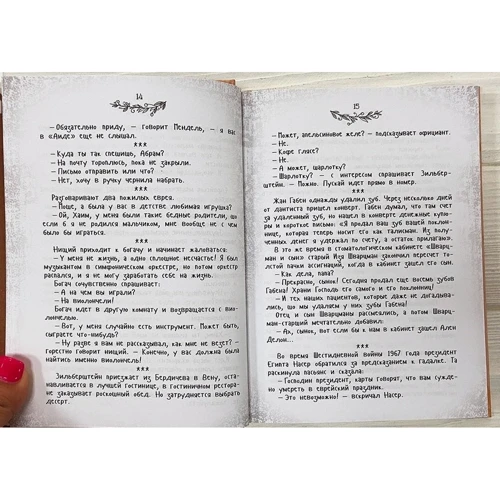 14
— Обязательно приду, — говорит Пендель, — я вас
в «Аиде» еще не слышал.
***
— Куда ты так спешишь, Абрам?
— На почту тороплюсь, пока не закрыли.
— Письмо отправить или что?
— Нет, хочу в ручку чернила набрать.
***
Разговаривают два пожилых еврея.
— Моше, а была у вас в детстве любимая игрушка?
— Ой, Хаим, у меня были такие бедные родители, шо
если б я не родился мальчиком, мне вообще не с чем
было бы играться.
***
Нищий приходит к богачу и начинает жаловаться:
— У меня не жизнь, а одно сплошное несчастье! Я был
музыкантом в симфоническом оркестре, но потом оркестр
распался, и я не знаю, как жить дальше.
Богач сочувственно спрашивает:
— А на чем вы играли?
— На виолончели!
Богач идет в другую комнату и возвращается с вио-
лончелью.
— Вот, у меня случайно есть инструмент. Может быть,
сыграете что-нибудь?
— Ну разве я вам не рассказывал, как мне не везет? —
горестно говорит нищий. — Конечно, у вас должна была
найтись именно виолончель!
***
Зильберштейн приезжает из Бердичева в Вену, оста-
навливается в лучшей гостинице, в гостиничном рестора-
не заказывает роскошный обед. Но затрудняется выбрать
десерт.
15
— Может, апельсиновое желе? — подсказывает официант.
— Не.
— Кофе глясе?
— Не.
— А может, шарлотку?
— Шарлотку? — с интересом спрашивает Зильбер-
штейн. — Можно. Пускай идет прямо в номер.
***
Жан Габен однажды удалил зуб. Через несколько дней
от дантиста пришел конверт. Габен думал, что там счет
за удаленный зуб, но нашел в конверте денежные купю-
ры и короткое письмо: «Я продал ваш зуб вашей поклон-
нице, которая теперь носит его как талисман. Из полу-
ченных денег я удержал по счету, а остаток прилагаю».
В это же время в стоматологическом кабинете «Шварц-
ман и сын» старый Изя Шварцман закончил пересчет
толстой пачки ассигнаций, когда в кабинет зашел его сын.
— Как дела, папа?
— Прекрасно, сынок! Сегодня продал еще восемь зубов
Габена! Храни Господь его самого и его поклонниц!
— И тех наших пациентов, которые даже не догадыва-
лись, шо мы удаляем у них зубы Габена!
Отец и сын Шварцманы рассмеялись, а потом Шварц-
ман-старший мечтательно добавил:
— Ах, сынок, вот если бы к нам в кабинет зашел Ален
Делон...
***
Во время Шестидневной войны 1967 года президент
Египта Насер обратился за предсказанием к гадалке. Та
раскинула пасьянс и сказала:
— Господин президент, карты говорят, что вам сужде-
но умереть в еврейский праздник.
— Это невозможно! — вскричал Насер.